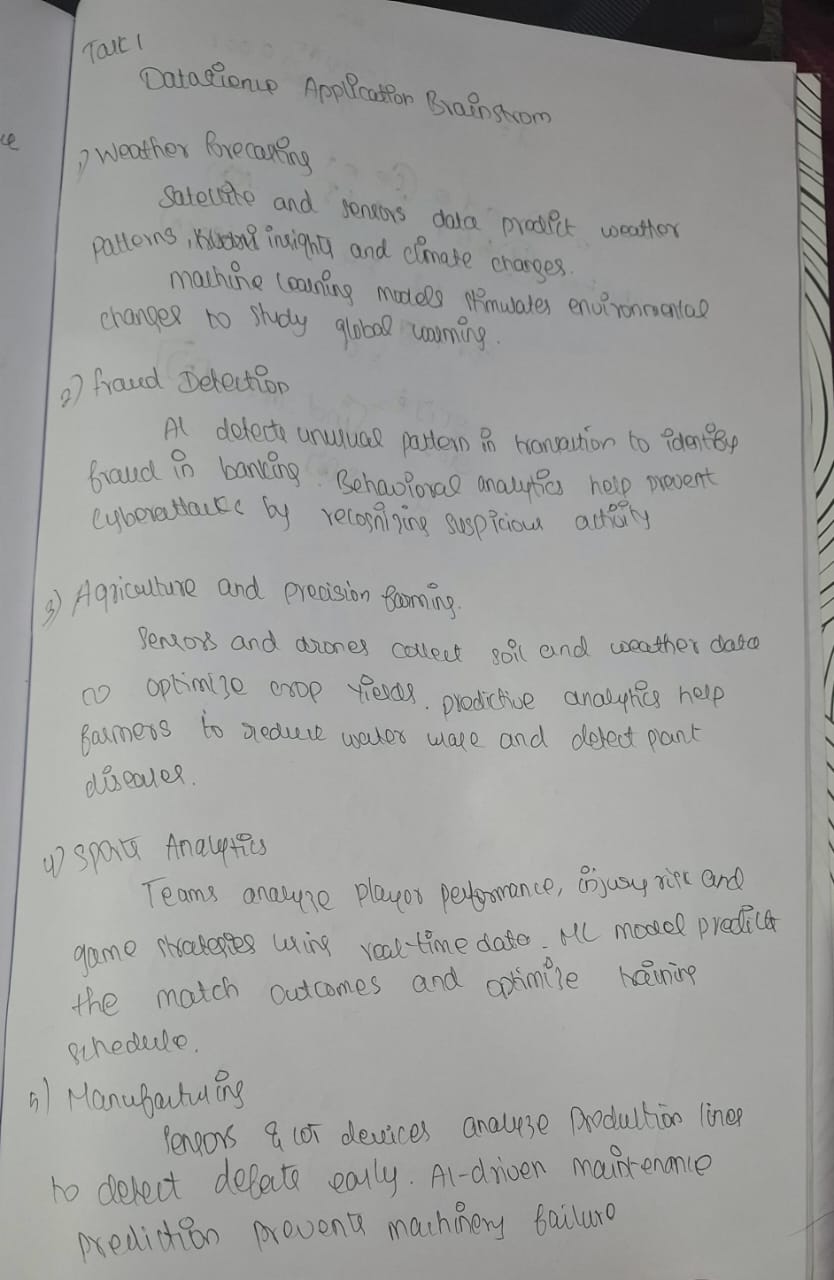 Task 1
Datascience Application Brainstrom
1) Weather forecasting
Satellite and sensors data predict weather
patterns, insights and climate changes.
machine learning models stimulates environmental
changes to study global warming.
2) fraud Detection
AI detects unusual pattern in transaction to identify
fraud in banking. Behavioral analytics help prevent
cyberattacks by recognizing suspicious activity
3) Agriculture and precision farming.
Sensors and drones collect soil and weather data
to optimize crop yields. predictive analytics help
farmers to reduce water wase and detect plant
diseases.
4) Sports Analytics
Teams analyze player performance, injury risk and
game strategies using real-time data. ML model predicts
the match outcomes and optimize training
schedule.
5) Manufacturing
Sensors & IOT devices analyze production lines
to detect defects early. AI-driven maintenance
prediction prevents machinery failure